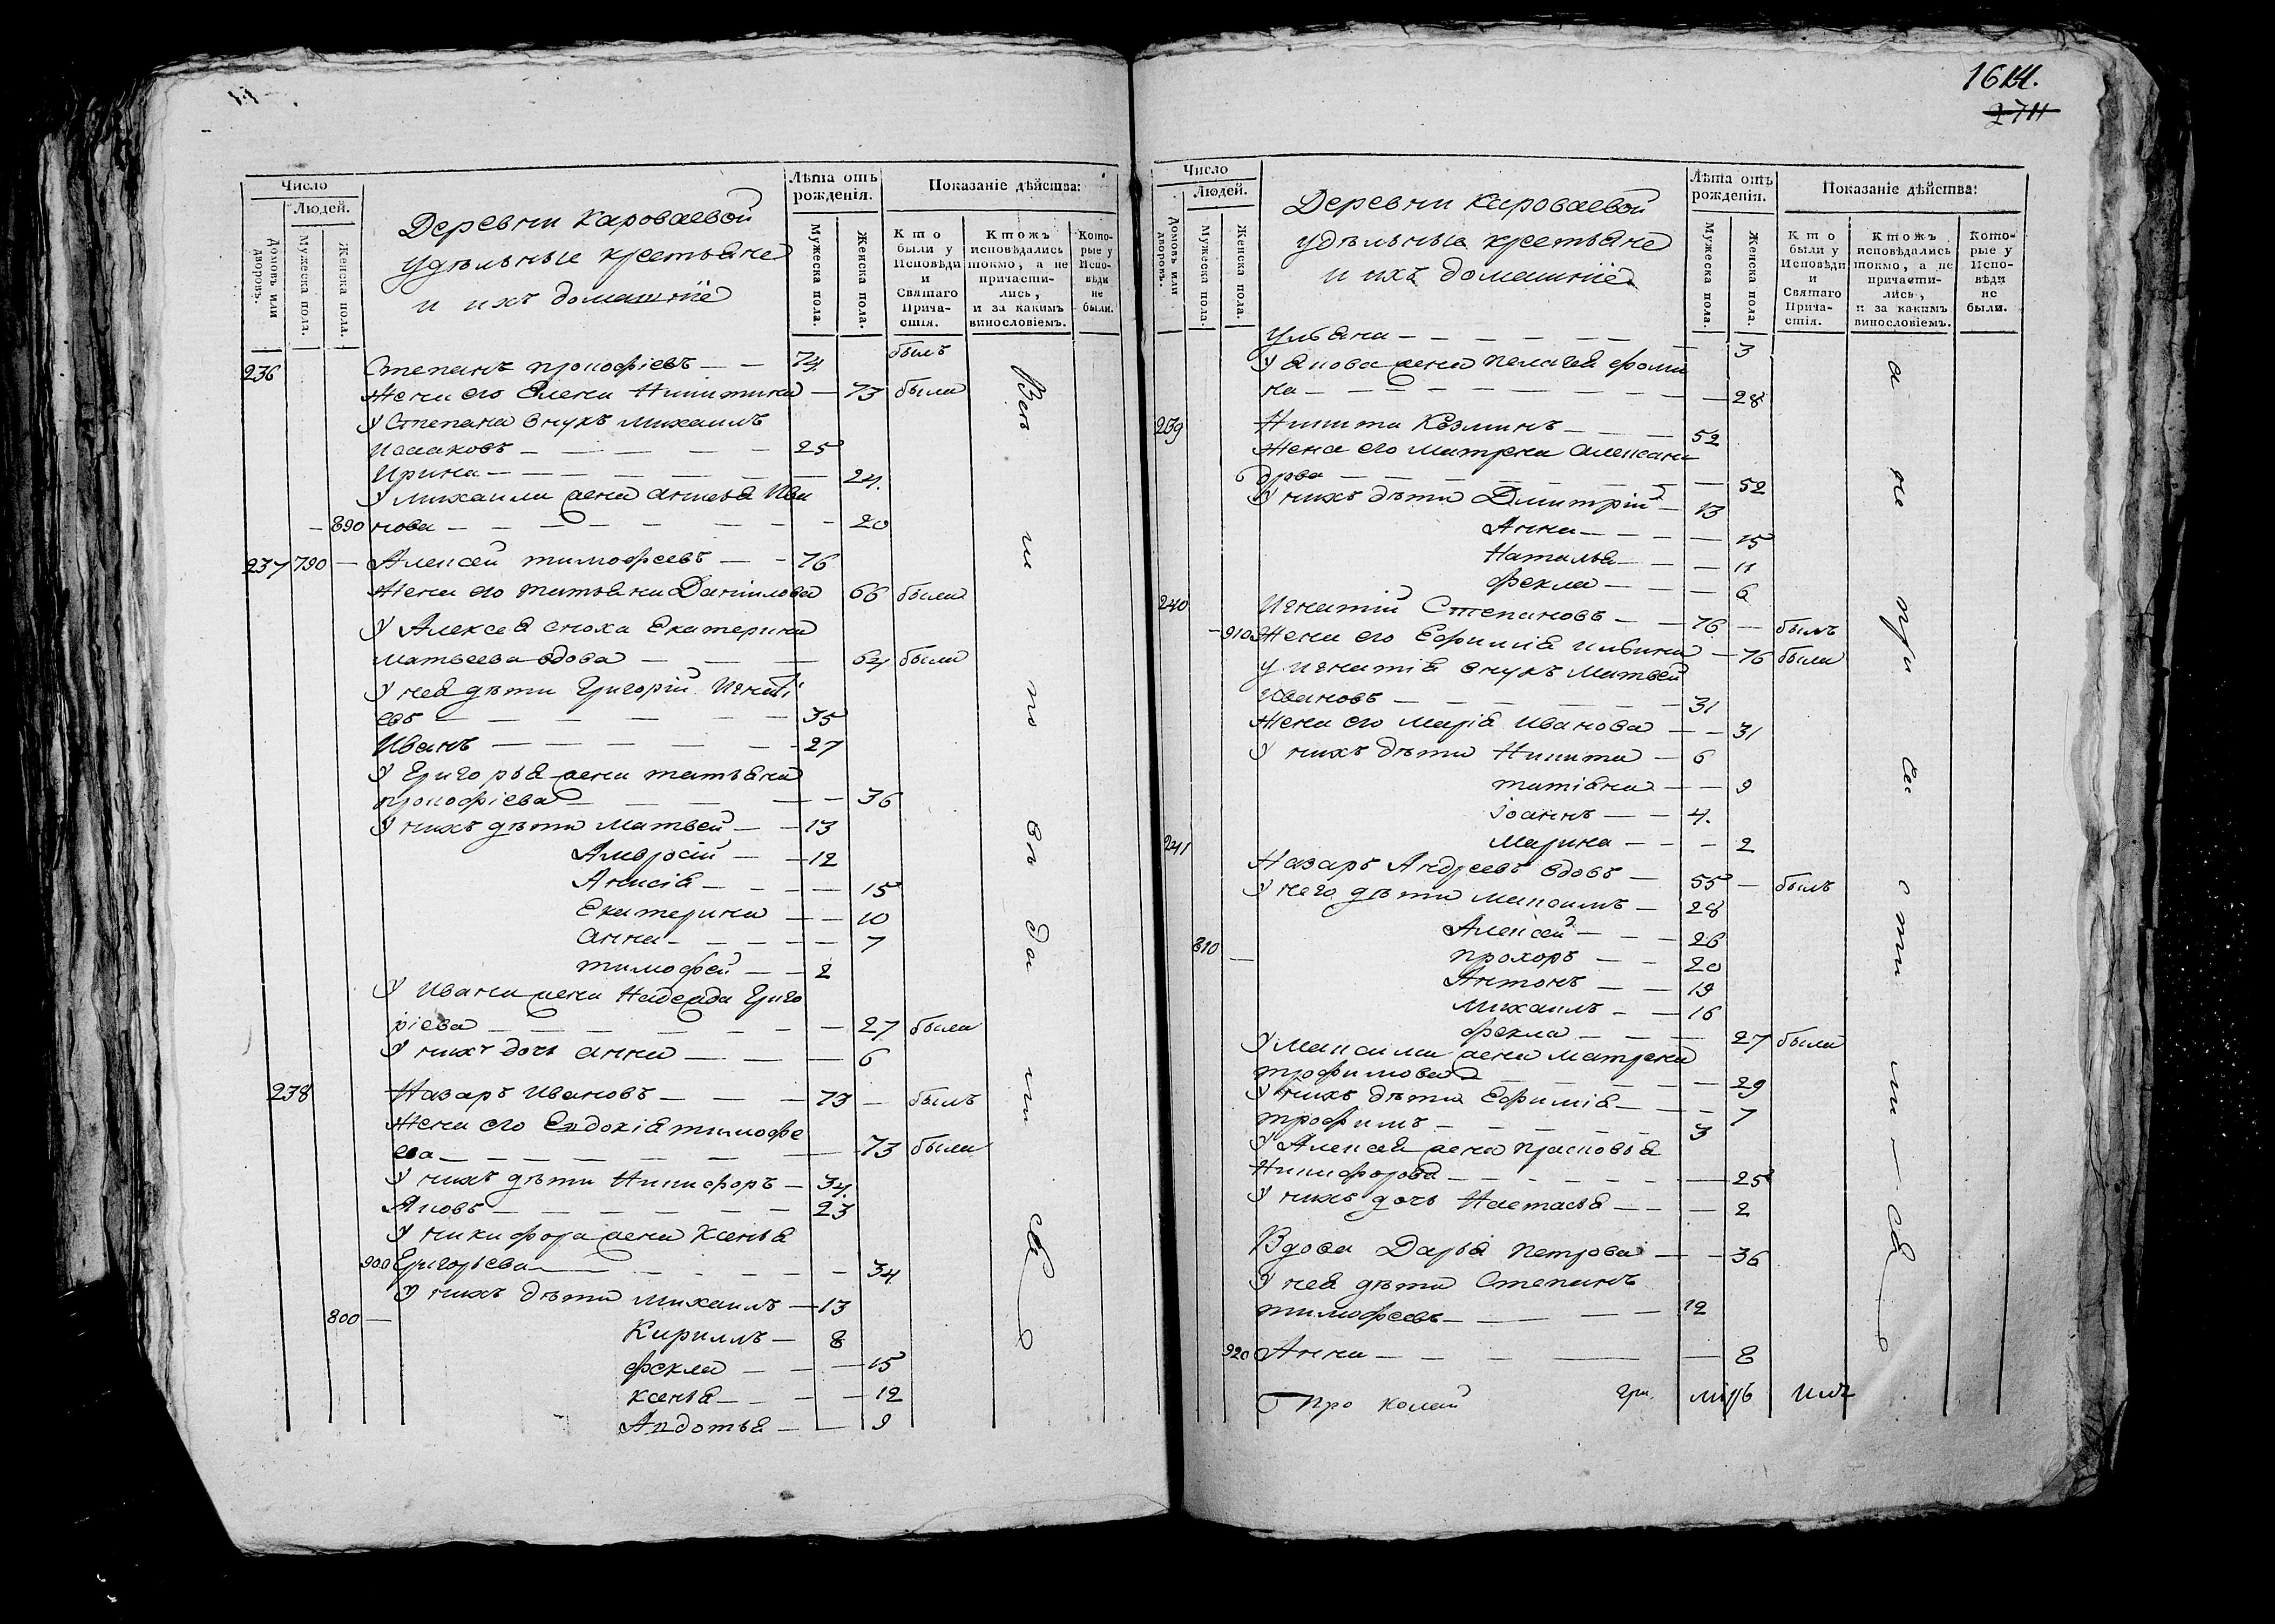 Число
Людей.
Домовъ или дворовъ.
Мужеска пола.
Женска пола.
Деревни Короваевой
удѣльные крестьяне
и ихъ домашнiе
Лѣта отъ рожденiя.
Мужеска пола.
Женска пола.
Показанiе дѣйства:
Кто были у Исповѣди и Святаго Причастiя.
Ктожъ исповѣдались токмо, а не причастились, и за какимъ винословiемъ.
Которые у Исповѣди не были.
236 Степанъ прокофiевъ — — 74 былъ
Жена его Елена Никитина — 73 была
У Степана внукъ михаилъ
Исааковъ — — — — — 25
Ирина — — — — — — 24.
У михаила жена анисья Ива
— 890 нова — — — — — — 20
237 790 — Алексей тимофеевъ — — 76
Жена его татьяна Данiилова 66 была
У Алексея сноха Екатерина
матвеева вдова — — — 64 была
У нея дѣти Григорiй Игнатi
евъ — — — — — — 35
Иванъ — — — — — — 27
У Григорья жена татьяна
прокофiева — — — — — 36
У нихъ дѣти Матвей — — 13
Амвросiй — — 12
Анисiя — — — — 15
Екатерина — — 10
анна — — — — — 7
тимофей — — 2
У Ивана жена Надежда Григо
рiева — — — — — — — 27 была
У нихъ дочь анна — — — — 6
238 Назаръ Ивановъ — — — 73 — былъ
Жена его Евдокiя тимофе
ева — — — — — — — 73 была
У нихъ дѣти Никифоръ — 34.
Яковъ — — — — — — 23
У никифора жена Ксенья
900 Григорьева — — — — — — 34
У нихъ дѣти михаилъ — 13
800 —
Кириллъ — 8
фекла — — — 15
ксенья — — — 12
Авдотья — — 9
Всѣ и по вѣ да ли сь
1614.
2711
Число
Людей.
Домовъ или дворовъ.
Мужеска пола.
Женска пола.
Деревни Короваевой
удѣльные крестьяне
и ихъ домашнiе
Лѣта отъ рожденiя.
Мужеска пола.
Женска пола.
Показанiе дѣйства:
Кто были у Исповѣди и Святаго Причастiя.
Ктожъ исповѣдались токмо, а не причастились, и за какимъ винословiемъ.
Которые у Исповѣди не были.
Ульяна — — — — — — 3
У Якова жена пелагея фоми
на — — — — — — — 28
239 Никита Козминъ — — — 52
Жена его матрена алексан
дрова — — — — — — — 52
У нихъ дѣти Дмитрiй — 13
Анна — — — — 15
Наталья — — — 11
фекла — — — 6
240 Игнатiй Степановъ — — 76 — былъ
— 910 Жена его Ефимiя ильина — 76 была
у игнатiя внукъ матвей
Ивановъ — — — — — — 31
Жена его марiя Иванова — — 31
У нихъ дѣти Никита — 6
татiяна — — 9
iоаннъ — — 4.
Марина — — — 2
241 Назаръ Андреевъ вдовъ — 55 — былъ
У него дѣти максимъ — 28
Алексей — — — 26
810 — прохоръ — — 20
Антонъ — — 19
михаилъ — — 16
фекла — — — 27 была
У максима жена матрена
трофимова — — — — — 29
У нихъ дѣти Ефимiя — — — 7
трофимъ — — — — — 3
У Алексея жена прасковья
Никифорова — — — — — — 25
У нихъ дочь Настасья — — — 2
Вдова Дарья петрова — — 36
У нея дѣти Степанъ
тимофеевъ — — — — 12
920 Анна — — — — — — 8
а не при ча сти ли — сь